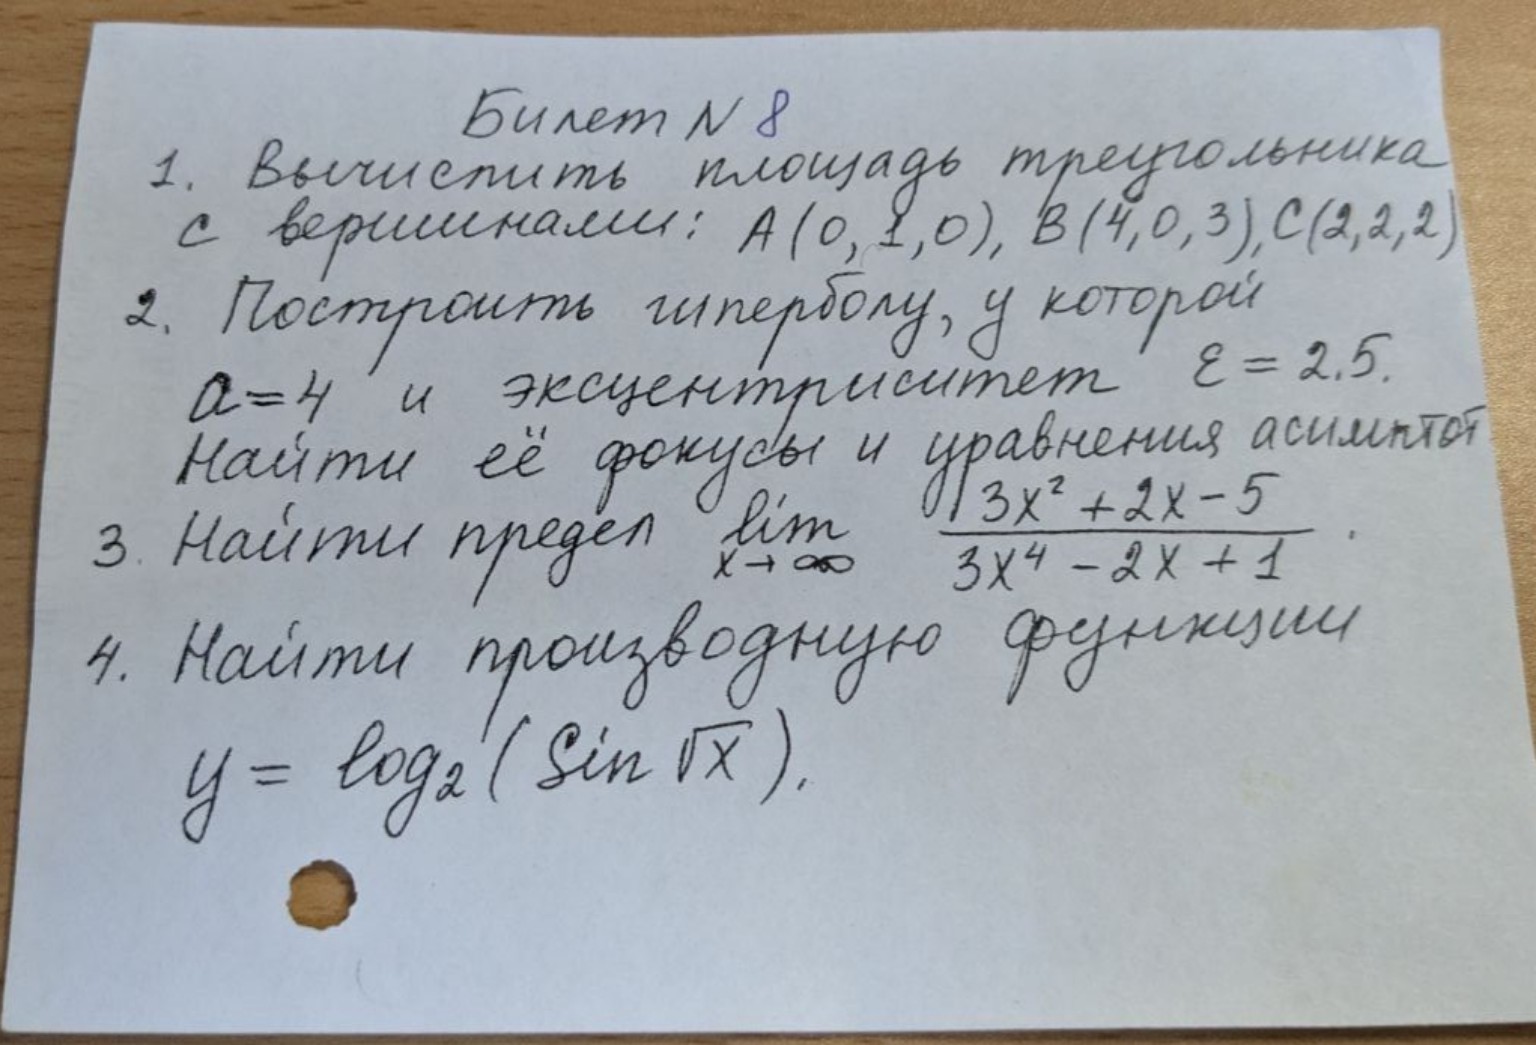 Билет N 8
1. Вычислить площадь треугольника
с вершинами: A(0,1,0), B(4,0,3), C(2,2,2)
2. Построить гиперболу, у которой
a=4 и эксцентриситет ε = 2.5.
Найти её фокусы и уравнения асимптот
3. Найти предел lim x→∞ (3x² + 2x - 5)/(3x⁴ - 2x + 1).
4. Найти производную функции
y = log₂(Sin √x).